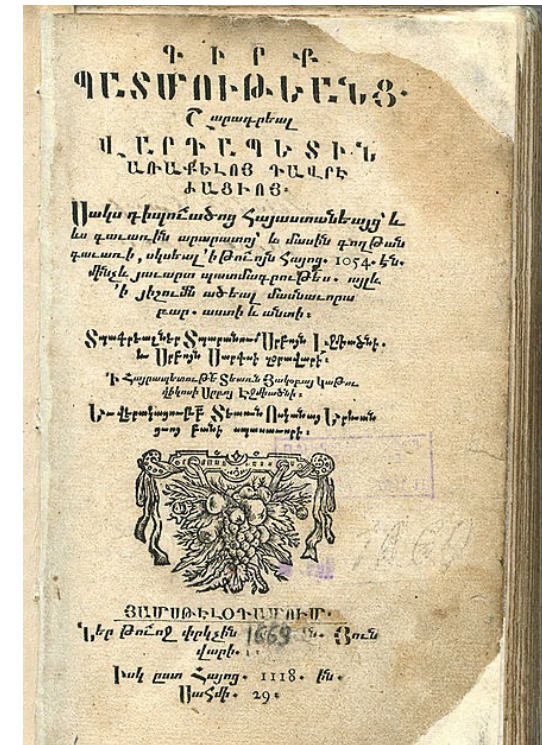 Գ Ի Ր Ք
ՊԱՏՄՈՒԹԵԱՆՑ.
Շարագրեալ
Վ ԱՐԴԱՊԵՏԻՆ
ԱՌԱՔԵԼՈՅ ԴԱՒՐԷ
ԺԱՑԻՈՅ.
Սակս դիպուածոց Հայաստանեայց՝ և
ևս գաւառին արարատոյ՝ և մասին գողթան
գաւառի, սկսեալ ՚ի Թուոյն Հայոց. 1054. էն.
մինչև յաւարտ պատմագրութես. այլև
՚ի յիշումն ածեալ մասնաւորա
բար. աստի և անտի։
Տպագրեալ Սրբոյն Էջմիածնի.
և Սրբոյն Սարգսի զօրավարի.
՚Ի Հայրապետութե Տեառն Յակօբայ կաթու
ղիկոսի Սրբոյ Էջմիածնի։
Տեառն Ոսկանայ Երևան
ցւոյ բանի սպասաւորի։
ՅԱՄՍԹԻԼՕԴԱՄՈՒՄ.
Ներ Թուոջ փրկչին 1669 Յուն
վարի.
Իսկ ըստ Հայոց. 1118. ին.
Սահմի. 29։